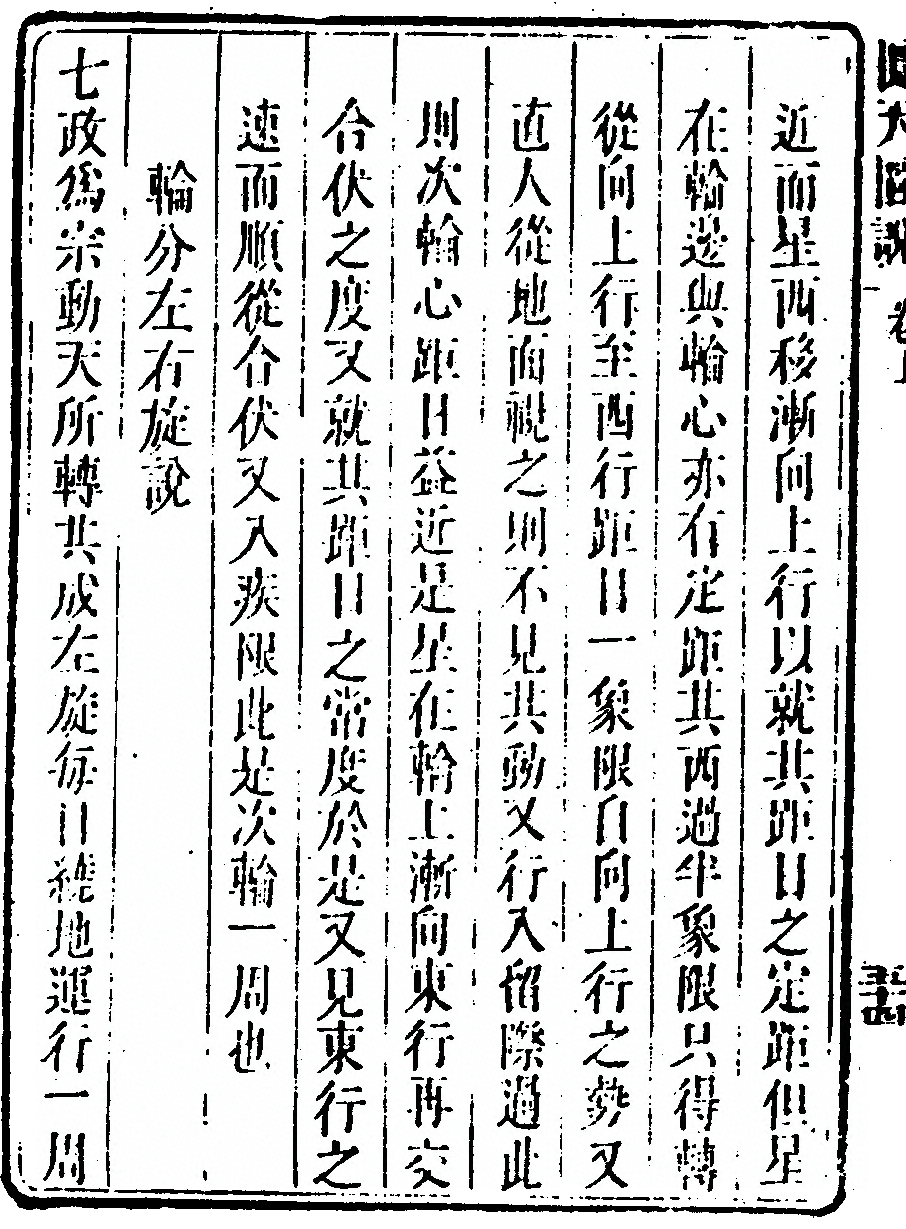 圜天圖說
卷上
近而星西移漸向上行以就其距日之定距但星
在輪邊與輪心亦有定距其西過半象限只得轉
從向上行至西行距日一象限自向上行之勢又
直人從地面視之則不見其動又行入留際過此
則次輪心距日益近是星在輪上漸向東行再交
合伏之度又就其距日之常度於是又見東行之
速而順從合伏又入疾限此是次輪一周也
輪分左右旋說
七政爲宗動天所轉共成左旋每日繞地運行一周